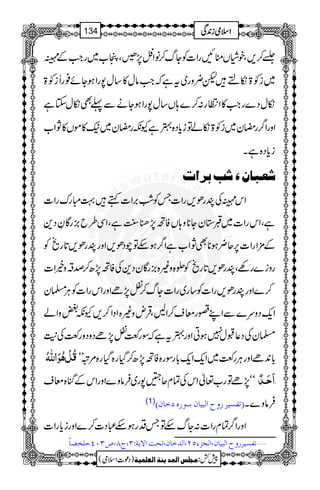 134
اسلامی زندگی
جلسے کریں، خوشیاں منائیں، رات کو جاگ کر نوافل پڑھیں، پنجاب میں رجب کے مہینہ
میں زکوٰۃ نکالتے ہیں لیکن ضروری یہ ہے کہ جب مال کا سال پورا ہو جائے فوراً زکوٰۃ
نکال دے رجب کا انتظار نہ کرے ہاں سال پورا ہونے سے پہلے بھی نکال سکتا ہے
اور اگر رمضان میں زکوٰۃ نکالے تو زیادہ بہتر ہے کیونکہ رمضان میں نیک کاموں کا ثواب
زیادہ ہے۔
شعبان، شب برات
اس مہینہ کی پندرھویں رات جس کو شب برات کہتے ہیں بہت مبارک رات
ہے، اس رات میں قبرستان جانا وہاں فاتحہ پڑھنا سنت ہے، اسی طرح بزرگان دین
کے مزارات پر حاضر ہونا بھی ثواب ہے اگر ہو سکے تو چودھویں اور پندرھویں تاریخ کو
روزے رکھے، پندرھویں تاریخ کو حلوہ وغیرہ بزرگان دین کی فاتحہ پڑھ کر صدقہ و خیرات
کرے اور پندرھویں رات کو ساری رات جاگ کر نفل پڑھے اور اس رات کو ہر مسلمان
ایک دوسرے سے اپنے قصور معاف کرالیں، قرض وغیرہ ادا کریں کیونکہ بغض والے
مسلمان کی دعا قبول نہیں ہوتی اور بہتر یہ ہے کہ سو رکعت نفل پڑھے دو دو رکعت کی نیت
باندھے اور ہر رکعت میں ایک ایک بار سورہ فاتحہ پڑھ کر گیارہ گیارہ مرتبہ ’’قُلْ هُوَ اللهُ
اَحَدٌ‘‘ پڑھے تو رب تعالیٰ اس کی تمام حاجتیں پوری فرمادے اور اس کے گناہ معاف
فرمادے۔ (تفسیر روح البیان سورہ دخان)(1)
اور اگر تمام رات نہ جاگ سکے تو جس قدر ہو سکے عبادت کرے اور زیارات
...... تفسیر روح البیان، الجزء ۲۵، الدخان، تحت الایة: ۳، ج ۸، ص ۴۰۳، ملخصاً
پیش کش: مجلس المدينة العلمية (دعوت اسلامی)